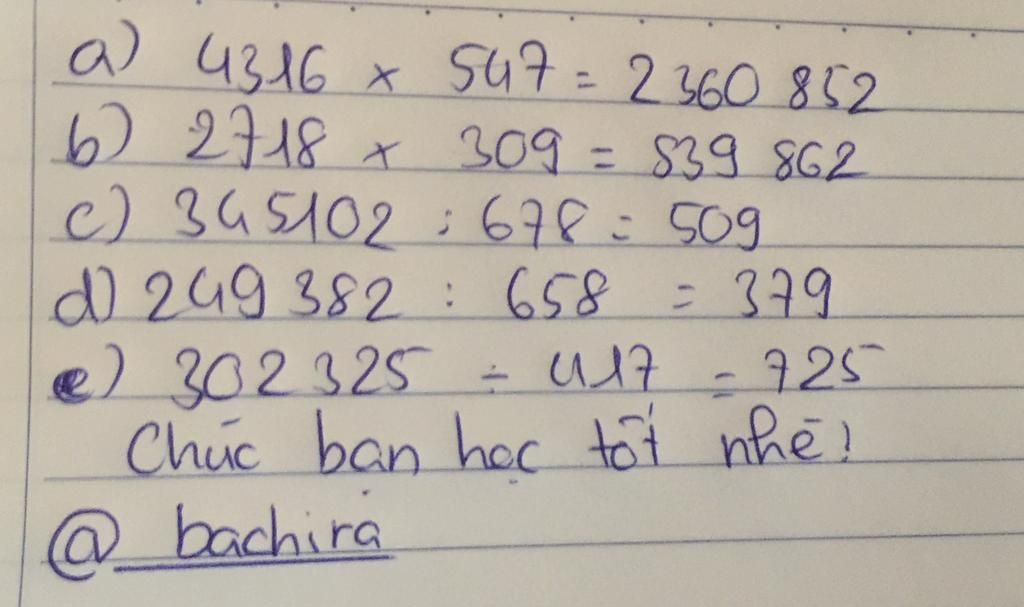 a) 4316 x 547 = 2360 852
b) 2718 x 309 = 839 862
c) 345102 : 678 = 509
d) 249 382 : 658 = 379
e) 302 325 : 417 = 725
Chúc bạn học tốt nhé!
@ bachira